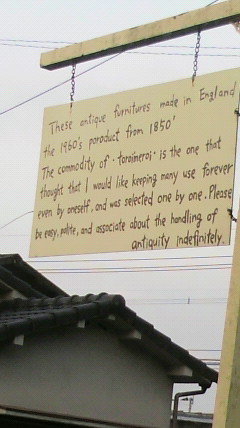 These antique furnitures made in England
the 1960's poroduct from 1850'
The commodity of・toraineroi・is the one that
thought that I would like keeping many use forever
even by oneself, and was selected one by one. Please
be easy, polite, and associate about the handling of
antiquity indefinitely.